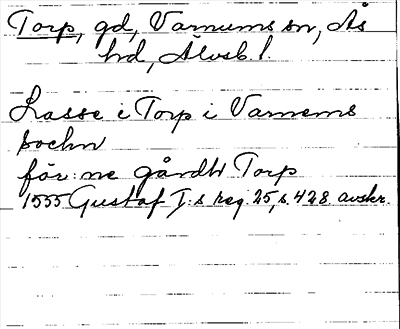 Torp, gd, Varnums sn, Ås
hd, Älvsb. l.
Lasse i Torp i Varnems
sockn
för: ne gårdh Torp
1555 Gustaf I:s reg. 25, s. 428. avskr.